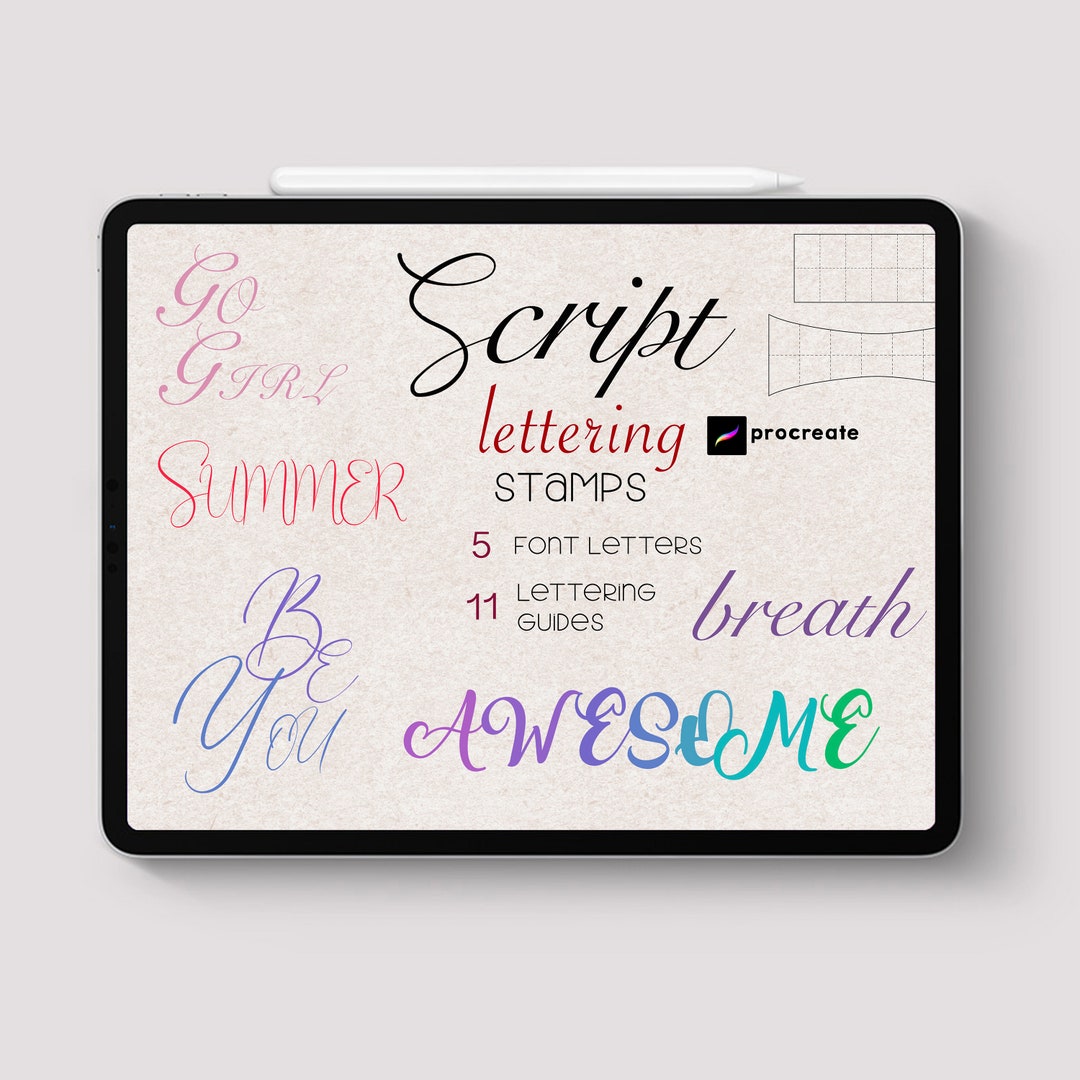 Go
Girl
Script
lettering
stamps
procreate
SUMMER
5 FONT LETTERS
11 LETTERING
GUIDES
Be
You
breath
AWESOME